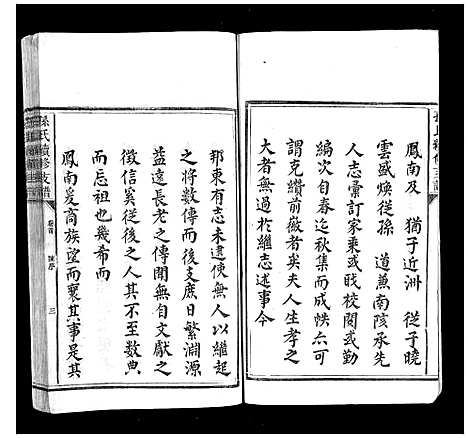 鳳南及　猶子近洲　從子曉
雲盛煥從孫　道薰南陔承先
人志彙訂家乘或戝校閱或勤
編次自春迄秋集而成帙亦可
謂克纘前徽者矣夫人生孝之
大者無過於繼志述事今
邨東有志未遑使無人以繼起
之將數傳而後支庶日繁淵源
益遠長老之傳聞無自文獻之
徵信奚從後之人其不至數典
而忘祖也幾希而
鳳南爰商族望而襄其事是其
孫氏續修支譜
卷首
三